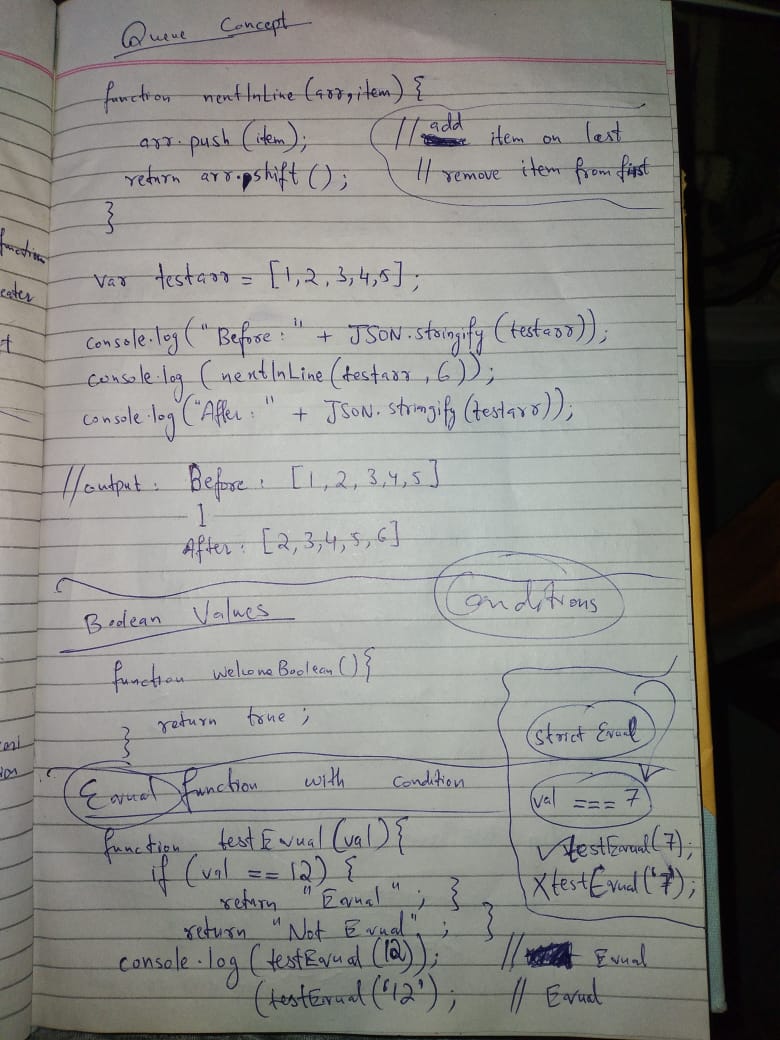 Queue Concept
function nextInLine (arr, item) {
arr.push (item); // add item on last
return arr.shift (); // remove item from first
}
var testarr = [1,2,3,4,5];
console.log ("Before : " + JSON.stringify (testarr));
console.log (nextInLine (testarr , 6));
console.log ("After : " + JSON.stringify (testarr));
//output : Before : [1, 2, 3,4,5]
1
After : [2,3,4,5,6]
Conditions
Boolean Values
function welcomeBoolean () {
return true ;
}
Strict Equal
val === 7
✓ testEqual(7);
X testEqual('7');
Equal function with condition
function testEqual (val) {
if (val == 12) {
return "Equal" ; }
return "Not Equal" ; }
console.log (testEqual (12)); // Equal
(testEqual ('12') ; // Equal
function
eater